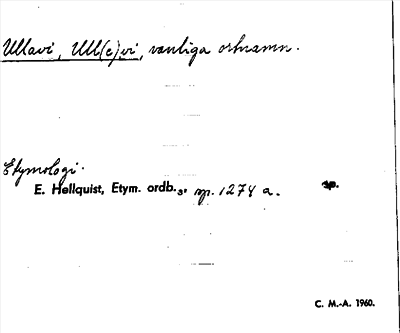 Ullavi, Ull(e)vi, vanliga ortnamn.
Etymologi.
E. Hellquist, Etym. ordb.3, sp. 1274 a.
C. M.-A. 1960.